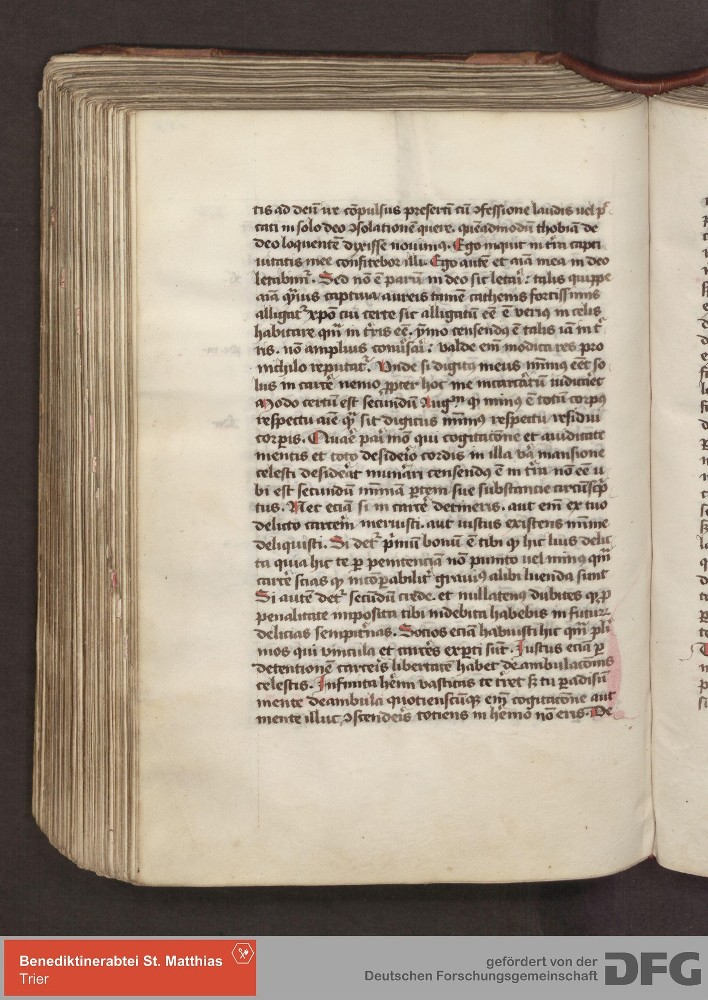 tis ad deū ut cōpulsus presertī cū ɔfessione laudis uel p̄
cati in solo deo ɔsolationē quere. quēadmodū thobiā de
deo loquentē dixisse nouimꝰ. Ego inquit in tr̄a capti
uitatis mee confitebor illi. Ego autē et aīa mea in deo
letabimr̄. Sed nō ē parum in deo sic letari: talis quippe
aīa captiua aureis tamē cathenis fortissimis
alligatr̄ xp̄o cui certe sic alligatū eē ē veriꝰ in celis
habitare qm̄ in tr̄is eē. ymo censendꝰ ē talis iā in t̄
ris. nō amplius valde em̄ modica res pro
nichilo reputatr̄. Unde si digitꝰ meus mīmꝰ eēt so
lus in carcē nemo ꝓpter hoc me incarcātū iudicāet
Modo certū est secundū Augᵐ ꝙ minꝰ ē totū corpꝰ
respectu aīe sit digitus mīmꝰ respectu residui
corꝑis. Quaē pari mō qui cogitacōne et auiditate
mentis et toto desideīo cordis in illa mansione
celesti desidēat censendꝰ ē in tr̄a nō eē u
bi est secundū mīmā ꝑtem sue substancie circūscp̄
tus. Nec eciā si in carcē detineris. aut em̄ ex tuo
delicto carcem̄ meruisti. aut iustus existens mīme
deliquisti. Si detr̄ pīmū bonū ē tibi ꝙ hic luis delic
ta quia hic te ꝑ penitenciā nō punito uel minꝰ qm̄
carcē scias ꝙ incōꝑabilitr̄ grauiꝰ alibi luenda sunt
Si autē detr̄ secūdū crede. et nullatenꝰ dubites ꝙ ꝓ
penalitate imposita tibi indebita habebis in futurꝭ
delicias sempitn̄as. Socios eciā habuisti hic qm̄ pli
mos qui vincula et carcēs exꝑti sūt. Iustus eciā ꝑ
detentionē carceīs libertatē habet deambulacōnis
celestis. Infinita hēmi vastitas te trēt tu ꝑadisū
mente deambula quotienscūꝙ em̄ cogitatōne aut
mente illuc ɔscendeīs totiens in hēmo nō eris. De
Benediktinerabtei St. Matthias
Trier
gefördert von der
Deutschen Forschungsgemeinschaft
DFG